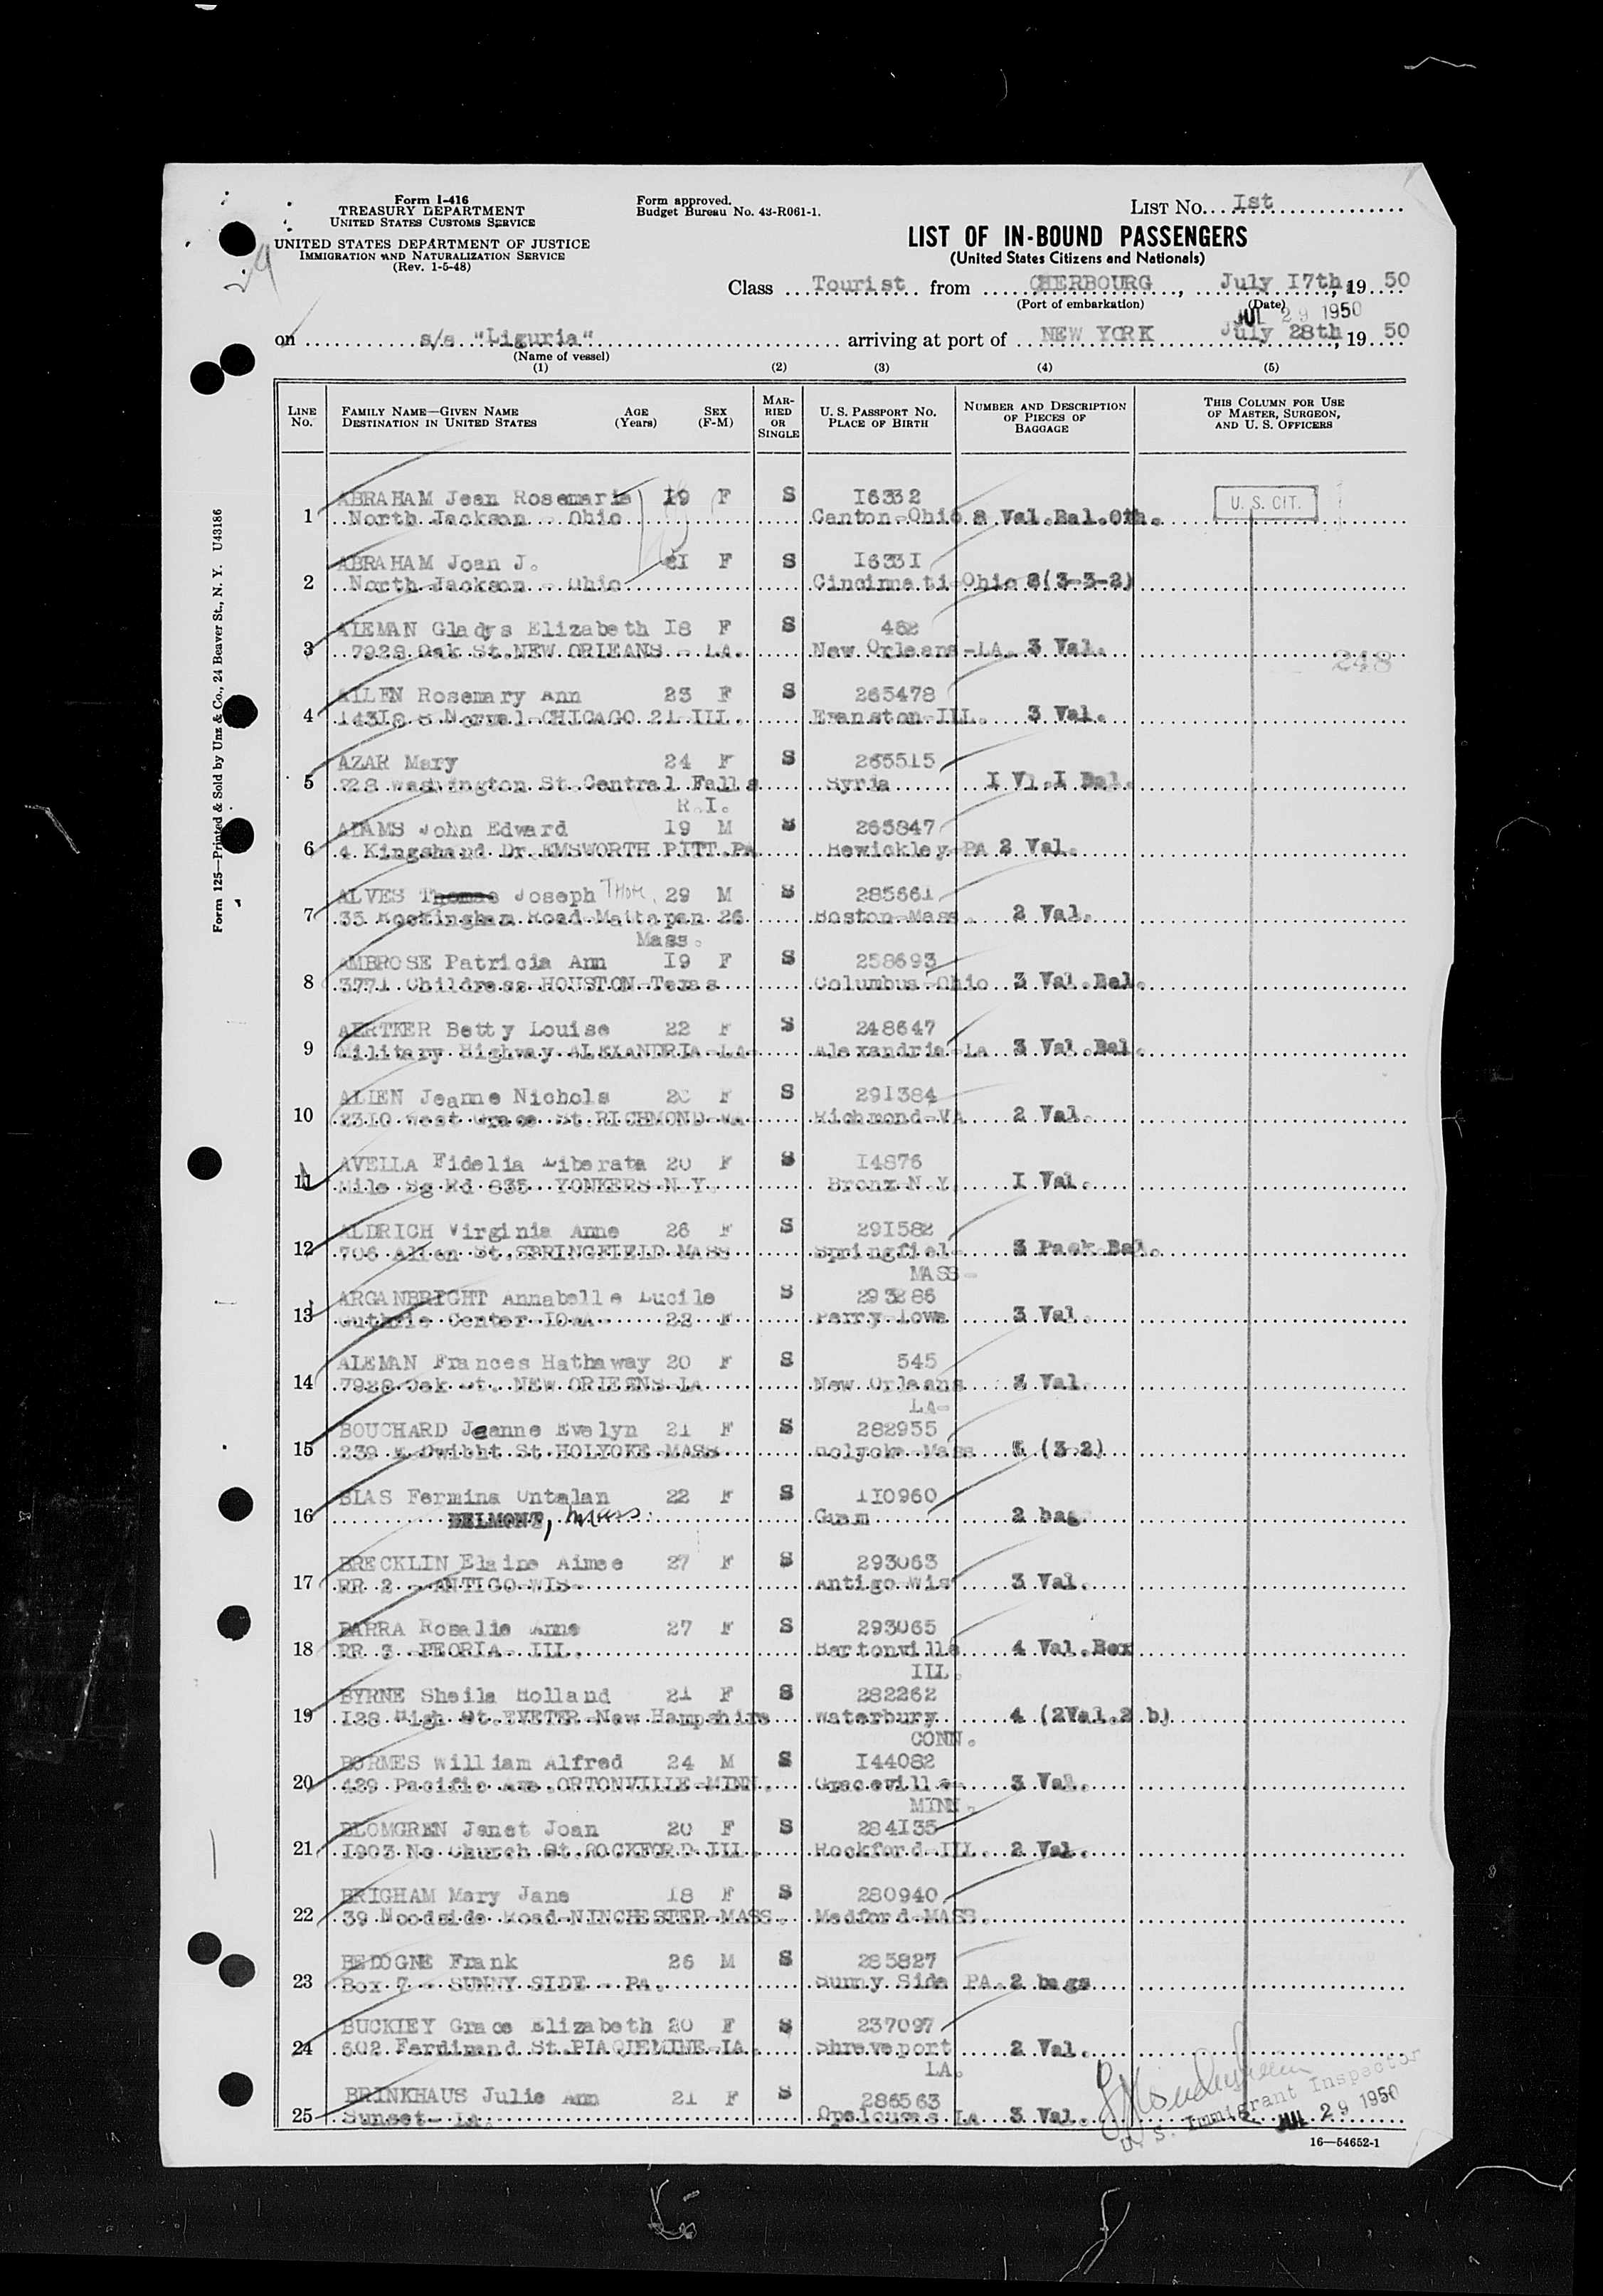 Form I-416
TREASURY DEPARTMENT
UNITED STATES CUSTOMS SERVICE
UNITED STATES DEPARTMENT OF JUSTICE
IMMIGRATION AND NATURALIZATION SERVICE
(Rev. 1-5-48)
Form approved.
Budget Bureau No. 43-R061-1.
LIST NO. Ist
LIST OF IN-BOUND PASSENGERS
(United States Citizens and Nationals)
Class Tourist from CHERBOURG, July I7th, 19 50
(Port of embarkation) (Date)
JUL 29 1950
on s/s "Liguria" arriving at port of NEW YORK July 28th, 19 50
(Name of vessel)
(1) (2) (3) (4) (5)
LINE NO. FAMILY NAME—GIVEN NAME DESTINATION IN UNITED STATES AGE (Years) SEX (F-M) MARRIED OR SINGLE U. S. PASSPORT NO. PLACE OF BIRTH NUMBER AND DESCRIPTION OF PIECES OF BAGGAGE THIS COLUMN FOR USE OF MASTER, SURGEON, AND U. S. OFFICERS
ABRAHAM Jean Rosemarie I9 F S I6332
1 North Jackson - Ohio Canton-Ohio 8 Val.Bal.Oth. U. S. CIT.
ABRAHAM Joan J. 21 F S I633I
2 North Jackson - Ohio Cincinnati Ohio 8(3-3-2)
ALEMAN Gladys Elizabeth I8 F S 482
3 7928 Oak St.NEW ORLEANS - LA. New Orleans-LA. 3 Val.
248
ALLEN Rosemary Ann 23 F S 265478
4 I43I8 S Normal-CHICAGO 21-ILL. Evanston-ILL. 3 Val.
AZAR Mary 24 F S 265515
5 228 Washington St.Central Falls Syria I Vl.I Bal.
R.I.
ADAMS John Edward I9 M S 265847
6 4 Kingshand Dr.EMSWORTH PITT.PA Sewickley-PA 2 Val.
ALVES Thomas Joseph Thom. 29 M S 285661
7 35 Rockingham Road-Mattapan 26 Boston-Mass. 2 Val.
Mass.
AMBROSE Patricia Ann I9 F S 258693
8 3771 Childress-HOUSTON-Texas Columbus-Ohio 3 Val.Bal.
AERTKER Betty Louise 22 F S 248647
9 Military Highway ALEXANDRIA-LA. Alexandria-LA 3 Val.Bal.
ALLEN Jeanne Nichols 20 F S 291384
10 2310 West Grace St.RICHMOND-VA Richmond-VA 2 Val.
AVELLA Fidelia Liberata 20 F S I4876
11 Mile Sq Rd 835 YONKERS-N.Y. Bronx-N.Y. I Val.
ALDRICH Virginia Anne 26 F S 291582
12 706 Allen St.SPRINGFIELD-MASS Springfield- 3 Pack Bal.
MASS-
ARGANBRIGHT Annabelle Lucile S 293286
13 Guthrie Center-IOWA- 22 F Perry-Iowa 3 Val.
ALEMAN Frances Hathaway 20 F S 545
14 7928 Oak St. NEW ORLEANS-LA New Orleans Val.
LA-
BOUCHARD Jeanne Evelyn 21 F S 282955
15 239 E Dwight St.HOLYOKE-MASS. Holyoke-Mass 5 (3-2)
BLAS Fermina Untalan 22 F S 110960
16 BELMONT, Mass. Guam 2 bag.
BRECKLIN Elaine Aimee 27 F S 293063
17 RR 2 - ANTIGO-WIS- Antigo-Wis 3 Val.
BARRA Rosalie Anne 27 F S 293065
18 RR 3 -PEORIA- ILL. Bartonville 4 Val.Box
ILL.
BYRNE Sheila Holland 21 F S 282262
19 I28 High St.EXETER-New Hampshire Waterbury 4 (2Val.2 b)
CONN.
BORMES William Alfred 24 M S I44082
20 429 Pacific Ave.ORTONVILLE-MINN. Graceville- 3 Val.
MINN.
BLOMGREN Janet Joan 20 F S 284I35
21 I903 No Church St.ROCKFORD-ILL. Rockford-ILL. 2 Val.
BRIGHAM Mary Jane I8 F S 280940
22 39 Woodside Road-WINCHESTER-MASS. Medford-MASS.
BEDOGNE Frank 26 M S 285827
23 Box 7 - SUNNY SIDE - PA. Sunny Side PA. 2 bags
BUCKLEY Grace Elizabeth 20 F S 237097
24 602 Ferdinand St.PLAQUEMINE-LA. Shreveport 2 Val.
LA.
BRINKHAUS Julie Ann 21 F S 286563
25 Sunset- La. Opelousas LA 3 Val.
U. S. Immigrant Inspector
JUL 29 1950
16—54652-1
Form 125—Printed & Sold by Unz & Co., 24 Beaver St., N. Y. U43186